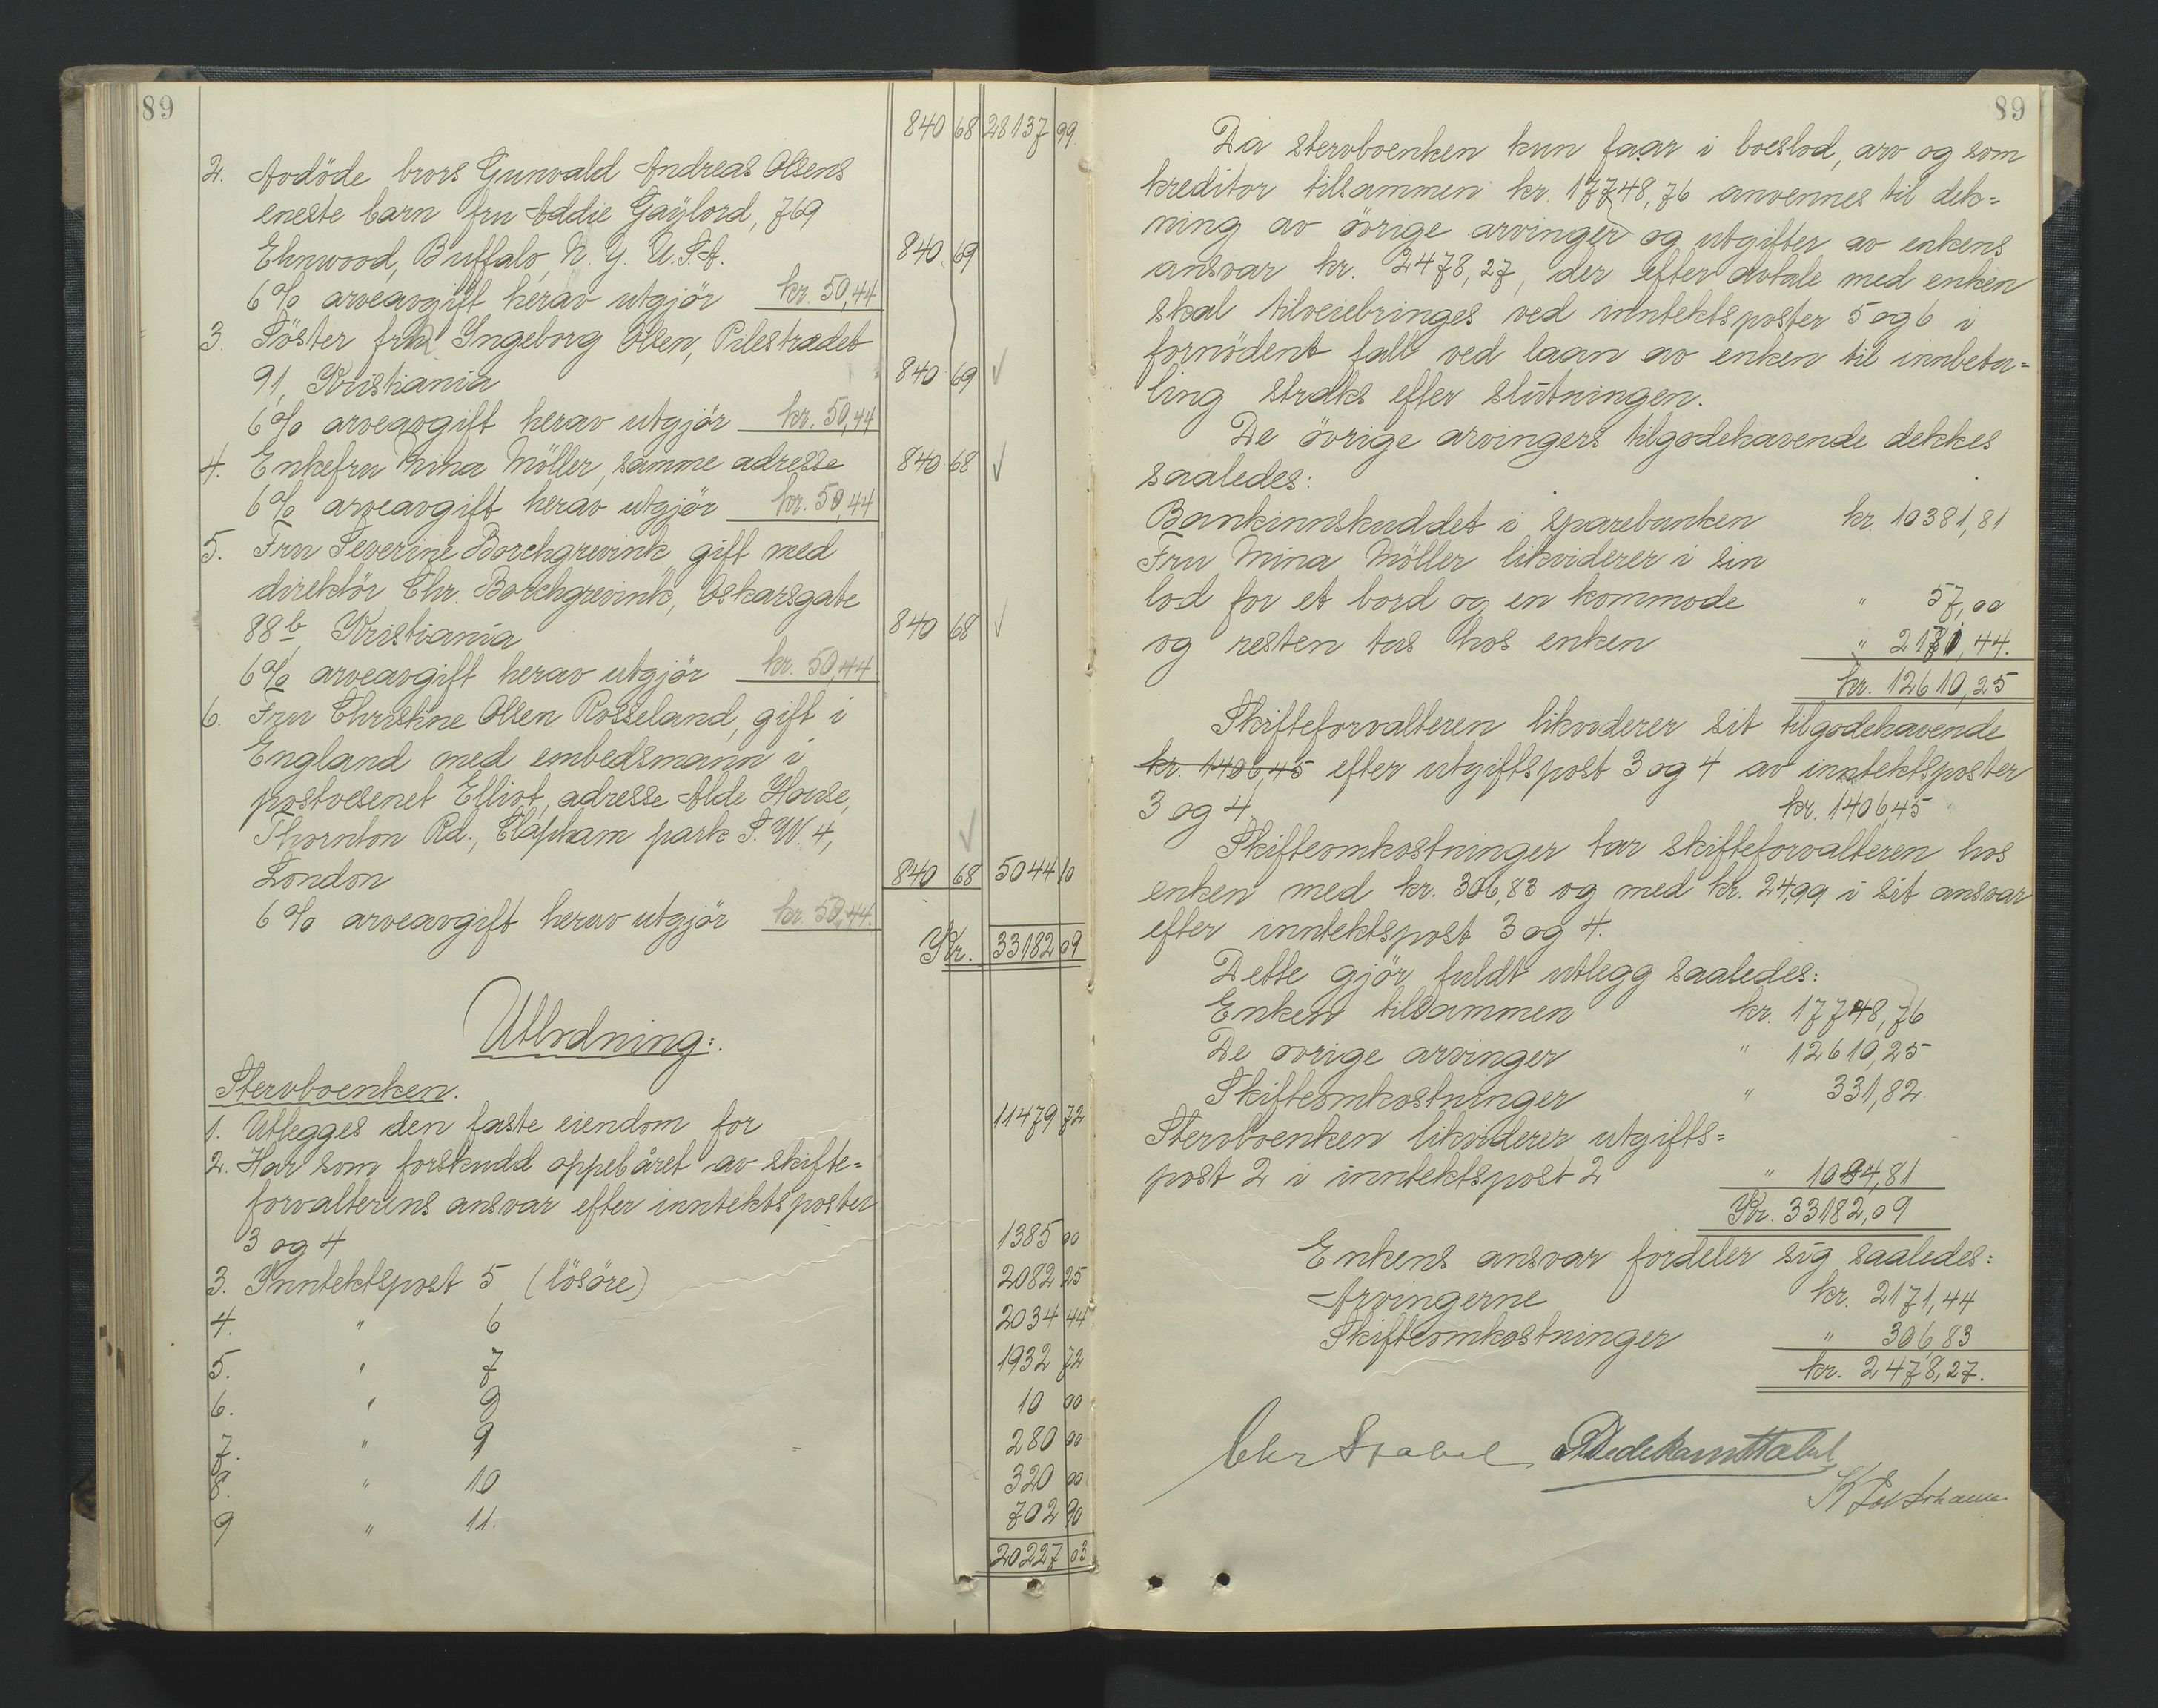 89
840 68 28137 99
2. Avdöde brors Gunvald Andreas Olsens
eneste barn fru Addie Gaylord, 769
Elmwood, Buffalo, N. Y. U.S.A. 840 69
6% arveavgift herav utgjör kr. 50,44
3. Söster frk Ingeborg Olsen, Pilestrædet
91, Kristiania 840 69 ✓
6% arveavgift herav utgjör kr. 50,44
4. Enkefru Mina Möller, samme adresse 840 68 ✓
6% arveavgift herav utgjör kr. 50,44
5. Fru Severine Borchgrevink, gift med
direktör Chr. Borchgrevink, Oskarsgate
88b, Kristiania 840 68 ✓
6% arveavgift herav utgjör kr. 50,44
6. Fru Christine Olsen Rosseland, gift i
England med embedsmann i
postvesenet Elliot, adresse Alde House,
Thornton Rd., Clapham park S.W. 4, ✓
London 840 68 5044 10
6% arveavgift herav utgjör kr. 50,44.
Kr. 33182 09
Utlodning:
Stervboenken.
1. Utlegges den faste eiendom for 11479 72
2. Har som forskudd oppebåret av skifte=
forvalterens ansvar efter inntektsposter
3 og 4 1385 00
3. Inntektspost 5 (lösöre) 2082 25
4. " 6 2034 44
5. " 7 1932 72
6. " 8 10 00
7. " 9 280 00
8. " 10 320 00
9 " 11. 702 90
20227 03
89
Da stervboenken kun faar i boeslod, arv og som
kreditor tilsammen kr. 17748,76 anvennes til dek=
ning av övrige arvinger og utgifter av enkens
ansvar kr. 2478,27, der efter avtale med enken
skal tilveiebringes ved inntektsposter 5 og 6 i
fornödent fall ved laan av enken til innbeta=
ling straks efter slutningen.
De övrige arvingers tilgodehavende dekkes
saaledes:
Bankinnskuddet i sparebanken kr. 10381,81
Fru Mina Möller likviderer i sin
lod for et bord og en kommode " 57,00
og resten tas hos enken " 2171,44.
kr. 12610,25
Skifteforvalteren likviderer sit tilgodehavende
kr. 1406,45 efter utgiftspost 3 og 4 av inntektsposter
3 og 4. kr. 1406,45
Skifteomkostninger tar skifteforvalteren hos
enken med kr. 306,83 og med kr. 24,99 i sit ansvar
efter inntektspost 3 og 4.
Dette gjör fuldt utlegg saaledes:
Enken tilsammen kr. 17748,76
De övrige arvinger " 12610,25
Skifteomkostninger " 331,82
Stervboenken likviderer utgifts=
post 2 i inntektspost 2 " 1084,81
Kr. 33182,09
Enkens ansvar fordeler sig saaledes:
Arvingerne kr. 2171,44
Skifteomkostninger " 306,83
kr. 2478,27.
Chr Stabel